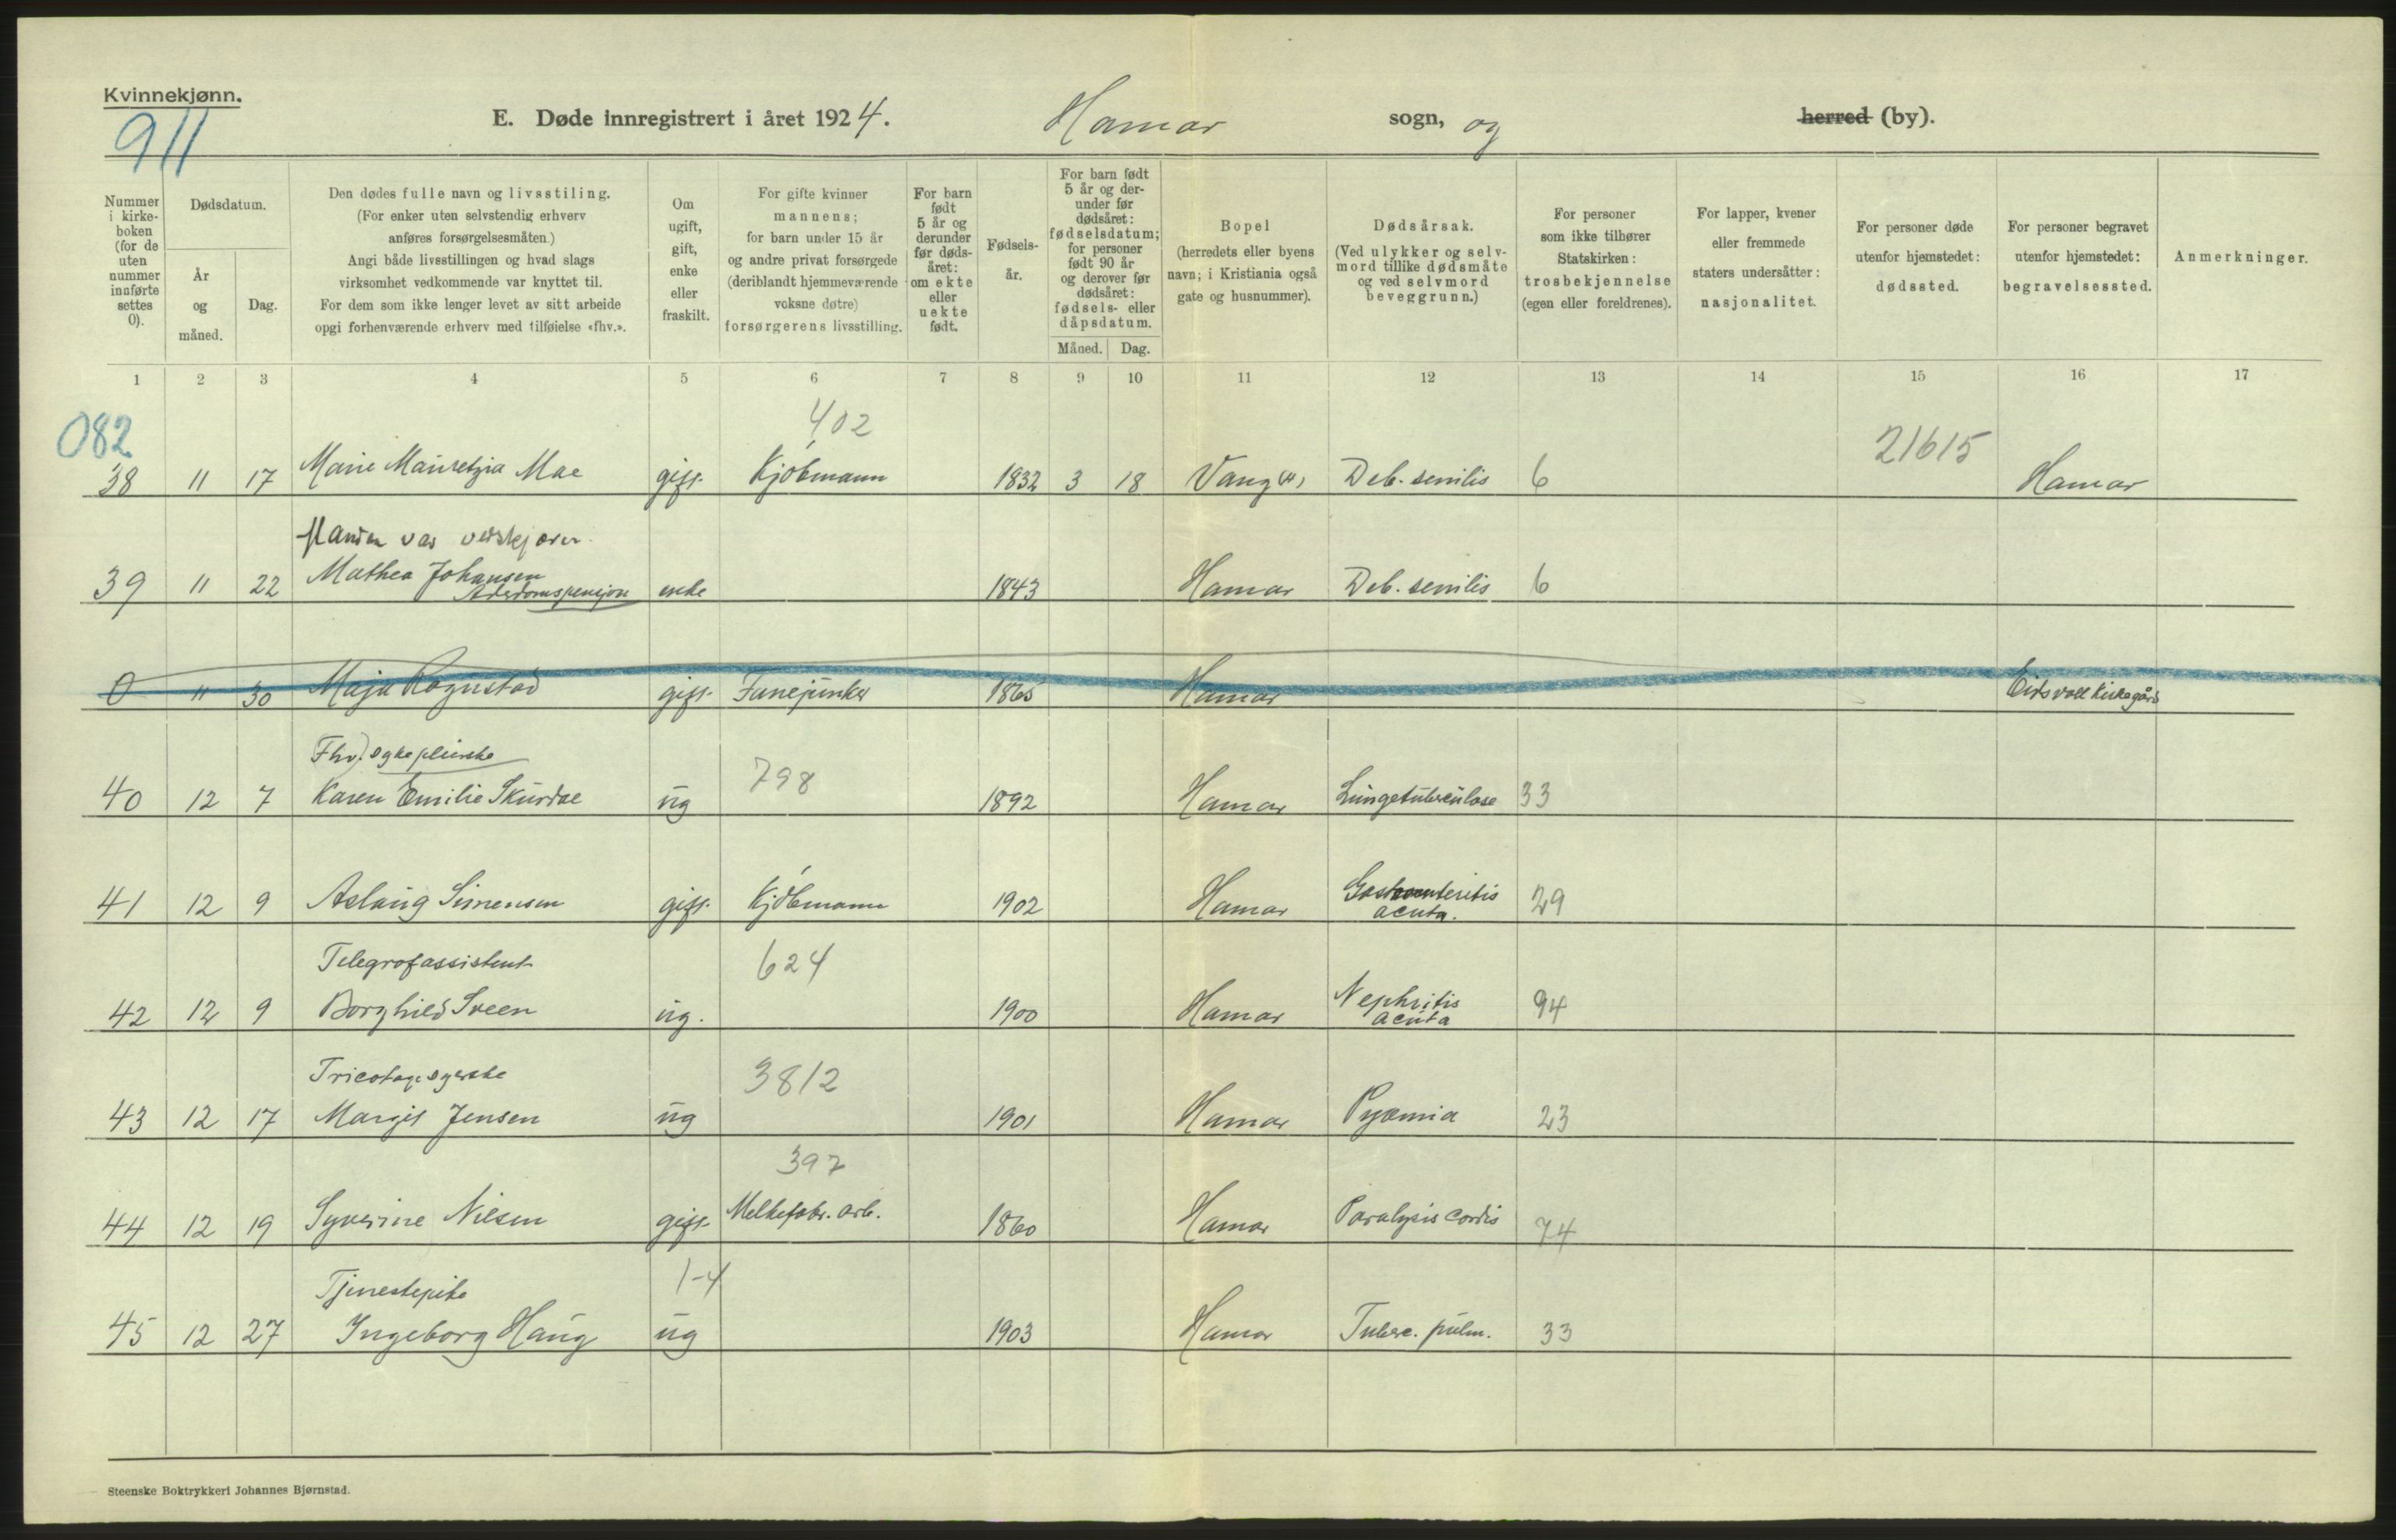 Kvinnekjønn.
911
E. Døde innregistrert i året 1924. Hamar sogn, og herred (by).
Nummer i kirke-boken (for de uten nummer innførte settes 0).
Dødsdatum.
År og måned.
Dag.
Den dødes fulle navn og livsstiling.
(For enker uten selvstendig erhverv
anføres forsørgelsesmåten.)
Angi både livsstillingen og hvad slags
virksomhet vedkommende var knyttet til.
For dem som ikke lenger levet av sitt arbeide
opgi forhenværende erhverv med tilføielse «fhv.».
Om ugift, gift, enke eller fraskilt.
For gifte kvinner
mannens;
for barn under 15 år
og andre privat forsørgede
(deriblandt hjemmeværende
voksne døtre)
forsørgerens livsstilling.
For barn født 5 år og derunder før døds-året: om ekte eller uekte født.
Fødsels-år.
For barn født 5 år og der-under før dødsåret: fødselsdatum; for personer født 90 år og derover før dødsåret: fødsels- eller dåpsdatum.
Måned. Dag.
Bopel
(herredets eller byens
navn; i Kristiania også
gate og husnummer).
Dødsårsak.
(Ved ulykker og selv-
mord tillike dødsmåte
og ved selvmord
beveggrunn.)
For personer
som ikke tilhører
Statskirken:
trosbekjennelse
(egen eller foreldrenes).
For lapper, kvener
eller fremmede
staters undersåtter:
nasjonalitet.
For personer døde
utenfor hjemstedet:
dødssted.
For personer begravet
utenfor hjemstedet:
begravelsessted.
Anmerkninger.
1 2 3 4 5 6 7 8 9 10 11 12 13 14 15 16 17
082 402 21615
38 11 17 Marie Mauretzia Moe gift Kjøbmann 1832 3 18 Vang (H) Deb. senilis 6 Hamar
Manden var vedskjærer.
39 11 22 Mathea Johansen enke 1843 Hamar Deb. senilis 6
Alderdomspensjon
0 11 30 Maja Rognstad gift Fanejunker 1865 Hamar Eidsvoll kirkegård
Fhv. sykepleierske
798
40 12 7 Karen Emilie Skurdal ug 1892 Hamar Lungetuberculose 33
41 12 9 Aslaug Simensen gift Kjøbmann 1902 Hamar Gastroenteritis acuta. 29
Telegrafassistent 624
42 12 9 Borghild Sveen ug. 1900 Hamar Nephritis acuta 94
Tricotagesyerske 3812
43 12 17 Margit Jensen ug 1901 Hamar Pyæmia 23
397
44 12 19 Syverine Nilsen gift Melkefabr. arb. 1860 Hamar Paralysis cordis 74
Tjenestepike 1-4
45 12 27 Ingeborg Haug ug 1903 Hamar Tuberc. pulm. 33
Steenske Boktrykkeri Johannes Bjørnstad.